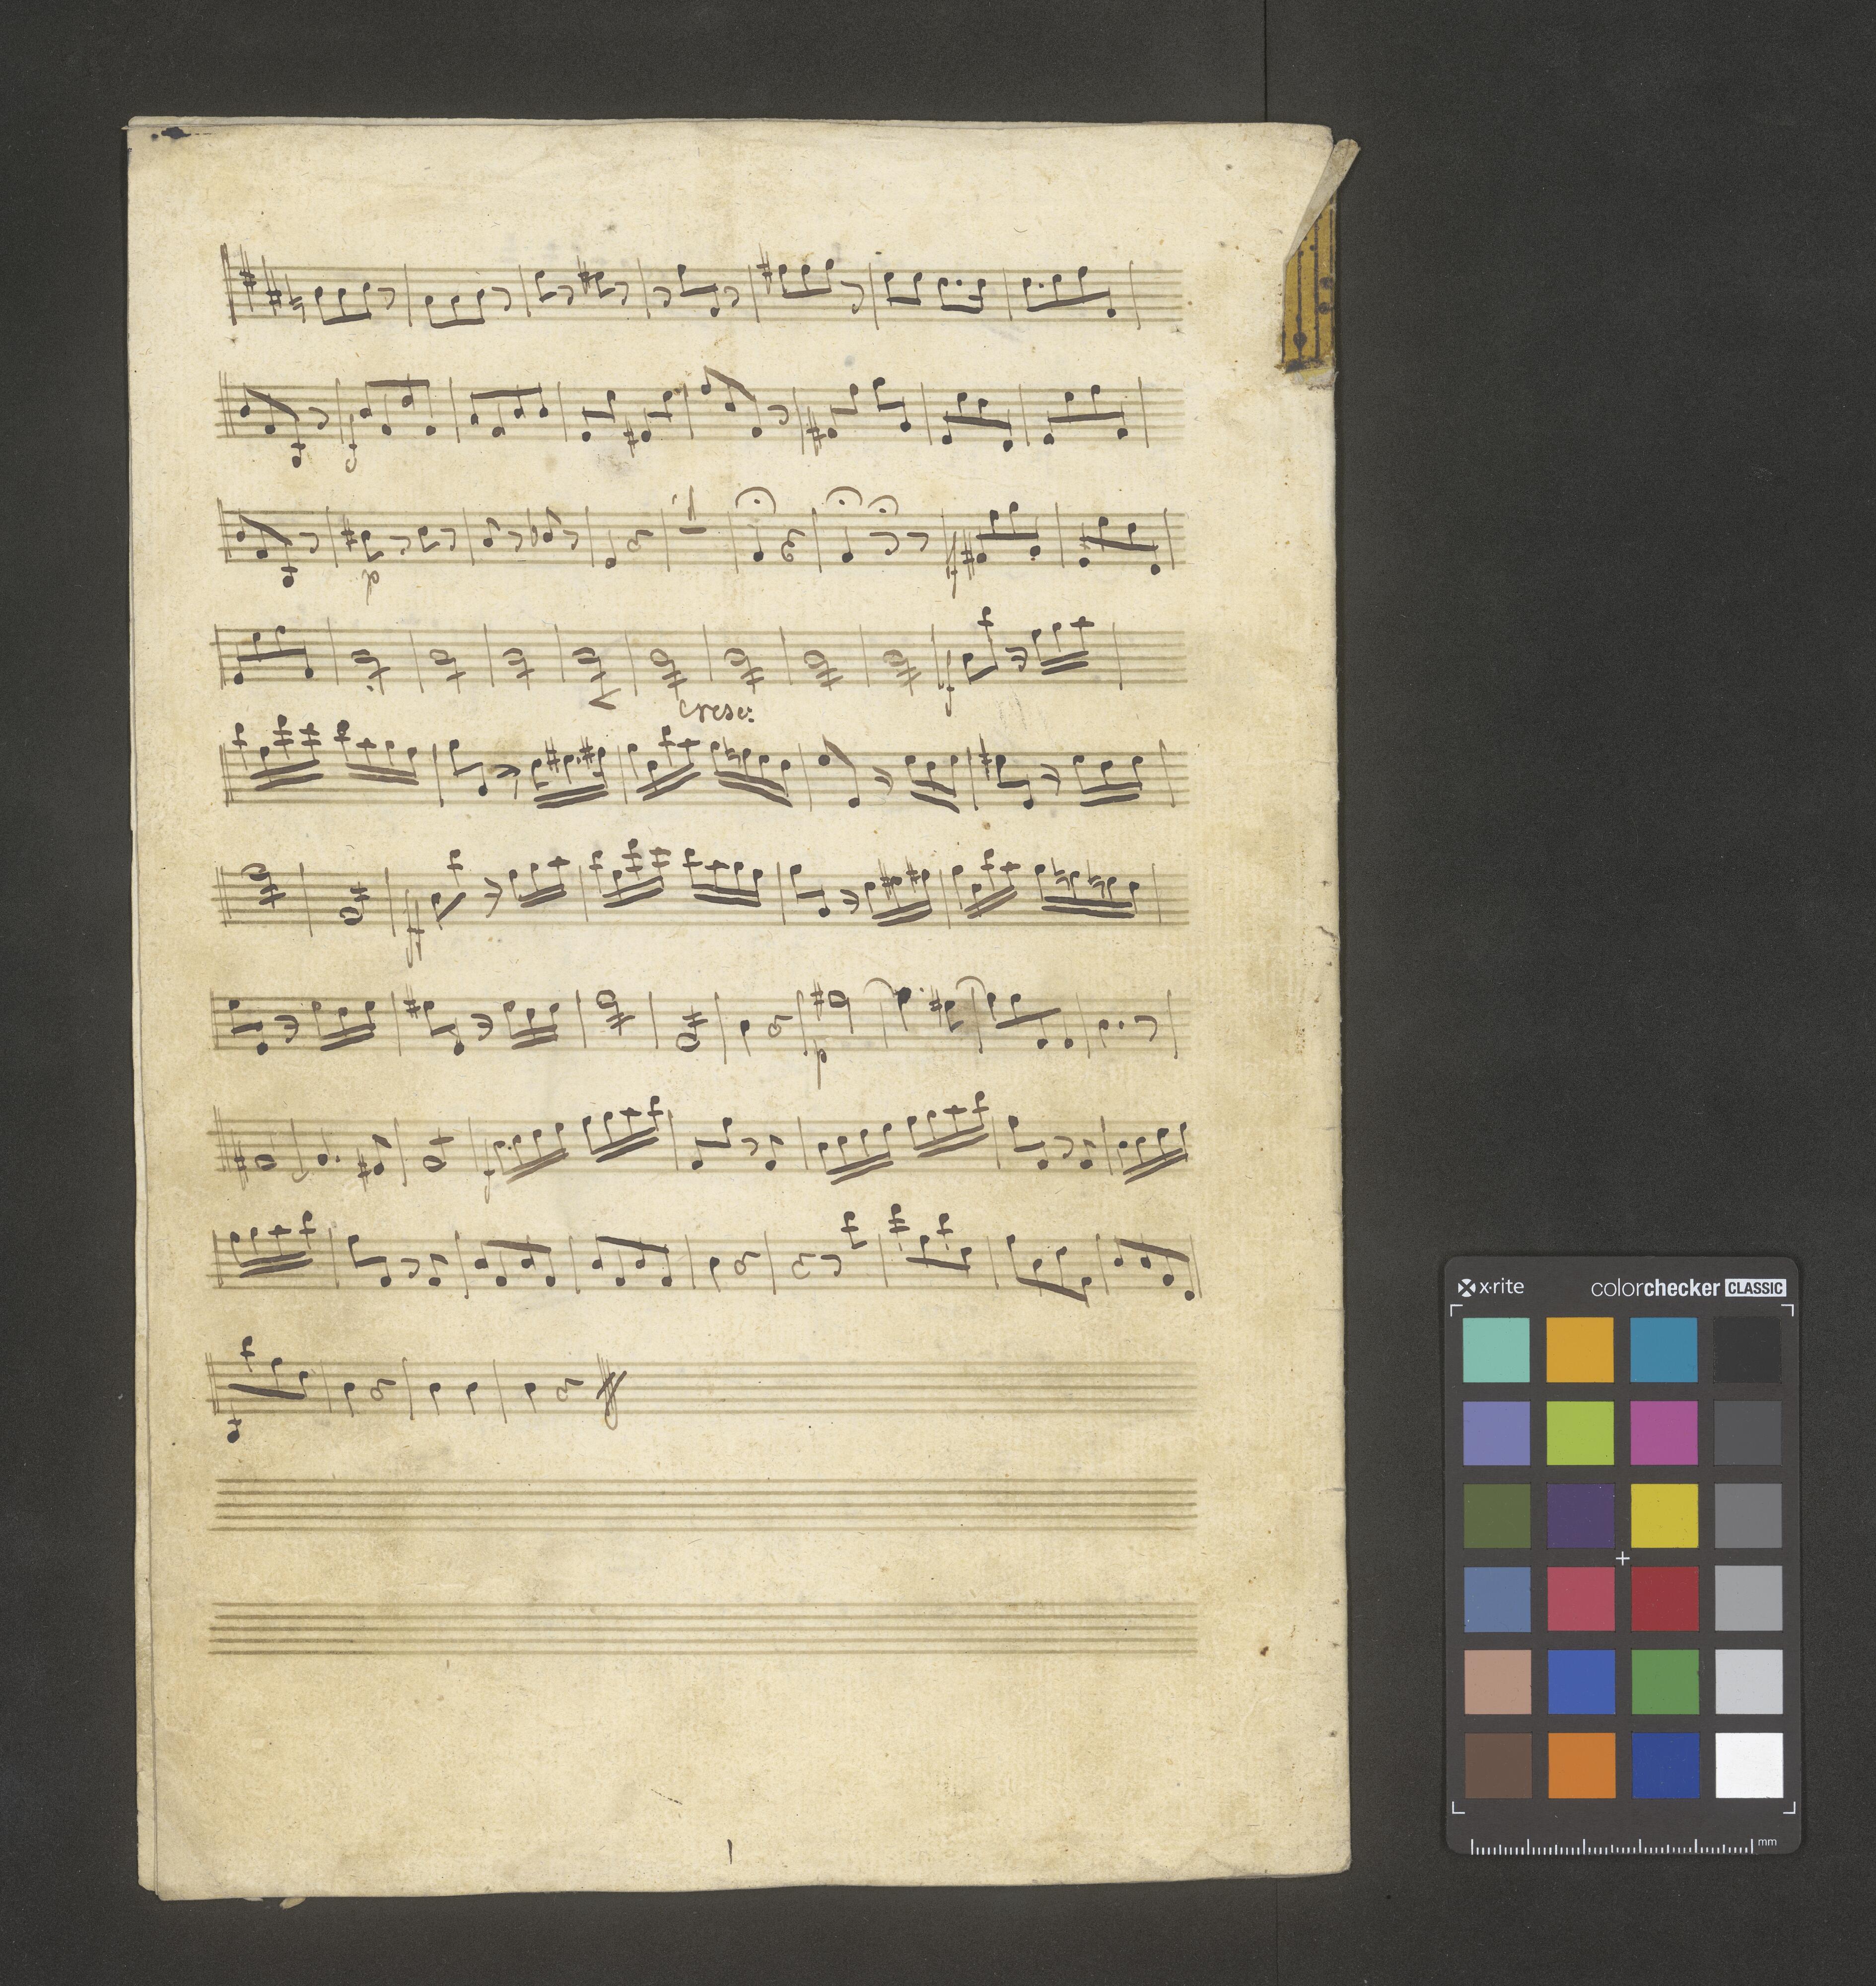 f
p
f
f
cresc:
ff
p
f
x·rite
colorchecker CLASSIC
mm